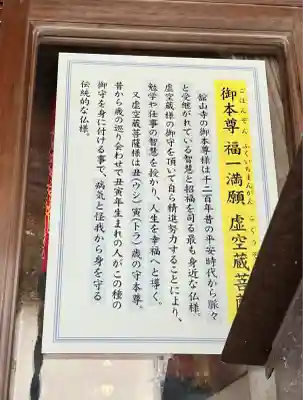 ごほんぞん ふくいちまんがん こくうぞ
御本尊 福一満願 虚空蔵菩
舘山寺の御本尊様は千二百年昔の平安時代から脈々
と受継がれている智慧と招福を司る最も身近な仏様。
虚空蔵様の御守を頂いて自ら精進努力することにより、
勉学や仕事の智慧を授かり、人生を幸福へと導く。
又虚空蔵菩薩様は丑(ウシ)寅(トラ)歳の守本尊。
昔から歳の巡り合わせで丑寅年生まれの人がこの種の
御守を身に付ける事で、病気と怪我から身を守る
伝統的な仏様。